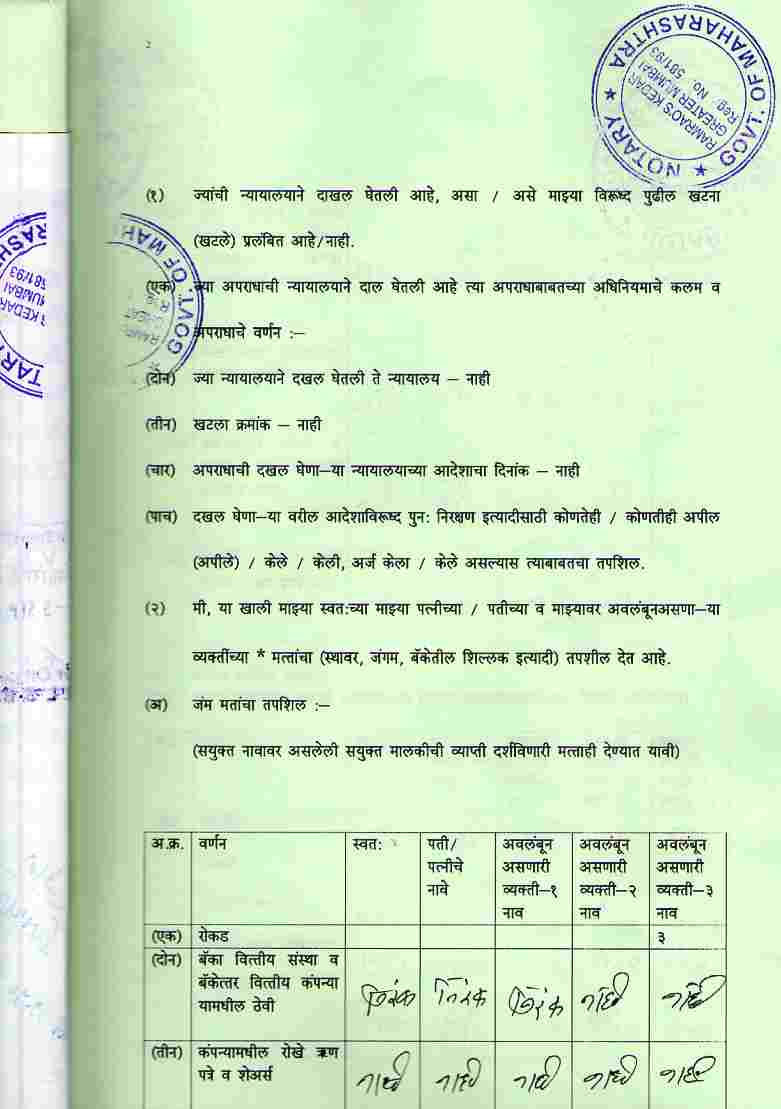 2
NOTARY ★ GOVT. OF MAHARASHTRA ★
RAMRAO'S KEDAR
GREATER MUMBAI
Reg. No.
581/93
(१) ज्यांची न्यायालयाने दाखल घेतली आहे, असा / असे माझ्या विरूध्द पुढील खटना
(खटले) प्रलंबित आहे/नाही.
(एक) ज्या अपराधाची न्यायालयाने दाल घेतली आहे त्या अपराधाबाबतच्या अधिनियमाचे कलम व
अपराधाचे वर्णन :–
(दोन) ज्या न्यायालयाने दखल घेतली ते न्यायालय – नाही
(तीन) खटला क्रमांक – नाही
(चार) अपराधाची दखल घेणा–या न्यायालयाच्या आदेशाचा दिनांक – नाही
(पाच) दखल घेणा–या वरील आदेशाविरूध्द पुन: निरक्षण इत्यादीसाठी कोणतेही / कोणतीही अपील
(अपीले) / केले / केली, अर्ज केला / केले असल्यास त्याबाबतचा तपशिल.
(२) मी, या खाली माझ्या स्वत:च्या माझ्या पत्नीच्या / पतीच्या व माझ्यावर अवलंबूनअसणा–या
व्यक्तींच्या * मत्तांचा (स्थावर, जंगम, बॅकेतील शिल्लक इत्यादी) तपशील देत आहे.
(अ) जंम मतांचा तपशिल :–
(सयुक्त नावावर असलेली सयुक्त मालकीची व्याप्ती दर्शविणारी मत्ताही देण्यात यावी)
अ.क्र. वर्णन स्वत: पती/ अवलंबून अवलंबून अवलंबून
पत्नीचे असणारी असणारी असणारी
नावे व्यक्ती–१ व्यक्ती–२ व्यक्ती–३
नाव नाव नाव
(एक) रोकड ३
(दोन) बॅका वित्तीय संस्था व
बॅकेत्तर वित्तीय कंपन्या निरंक निरंक निरंक नाही नाही
यामधील ठेवी
(तीन) कंपन्यामधील रोखे ऋण
पत्रे व शेअर्स नाही नाही नाही नाही नाही